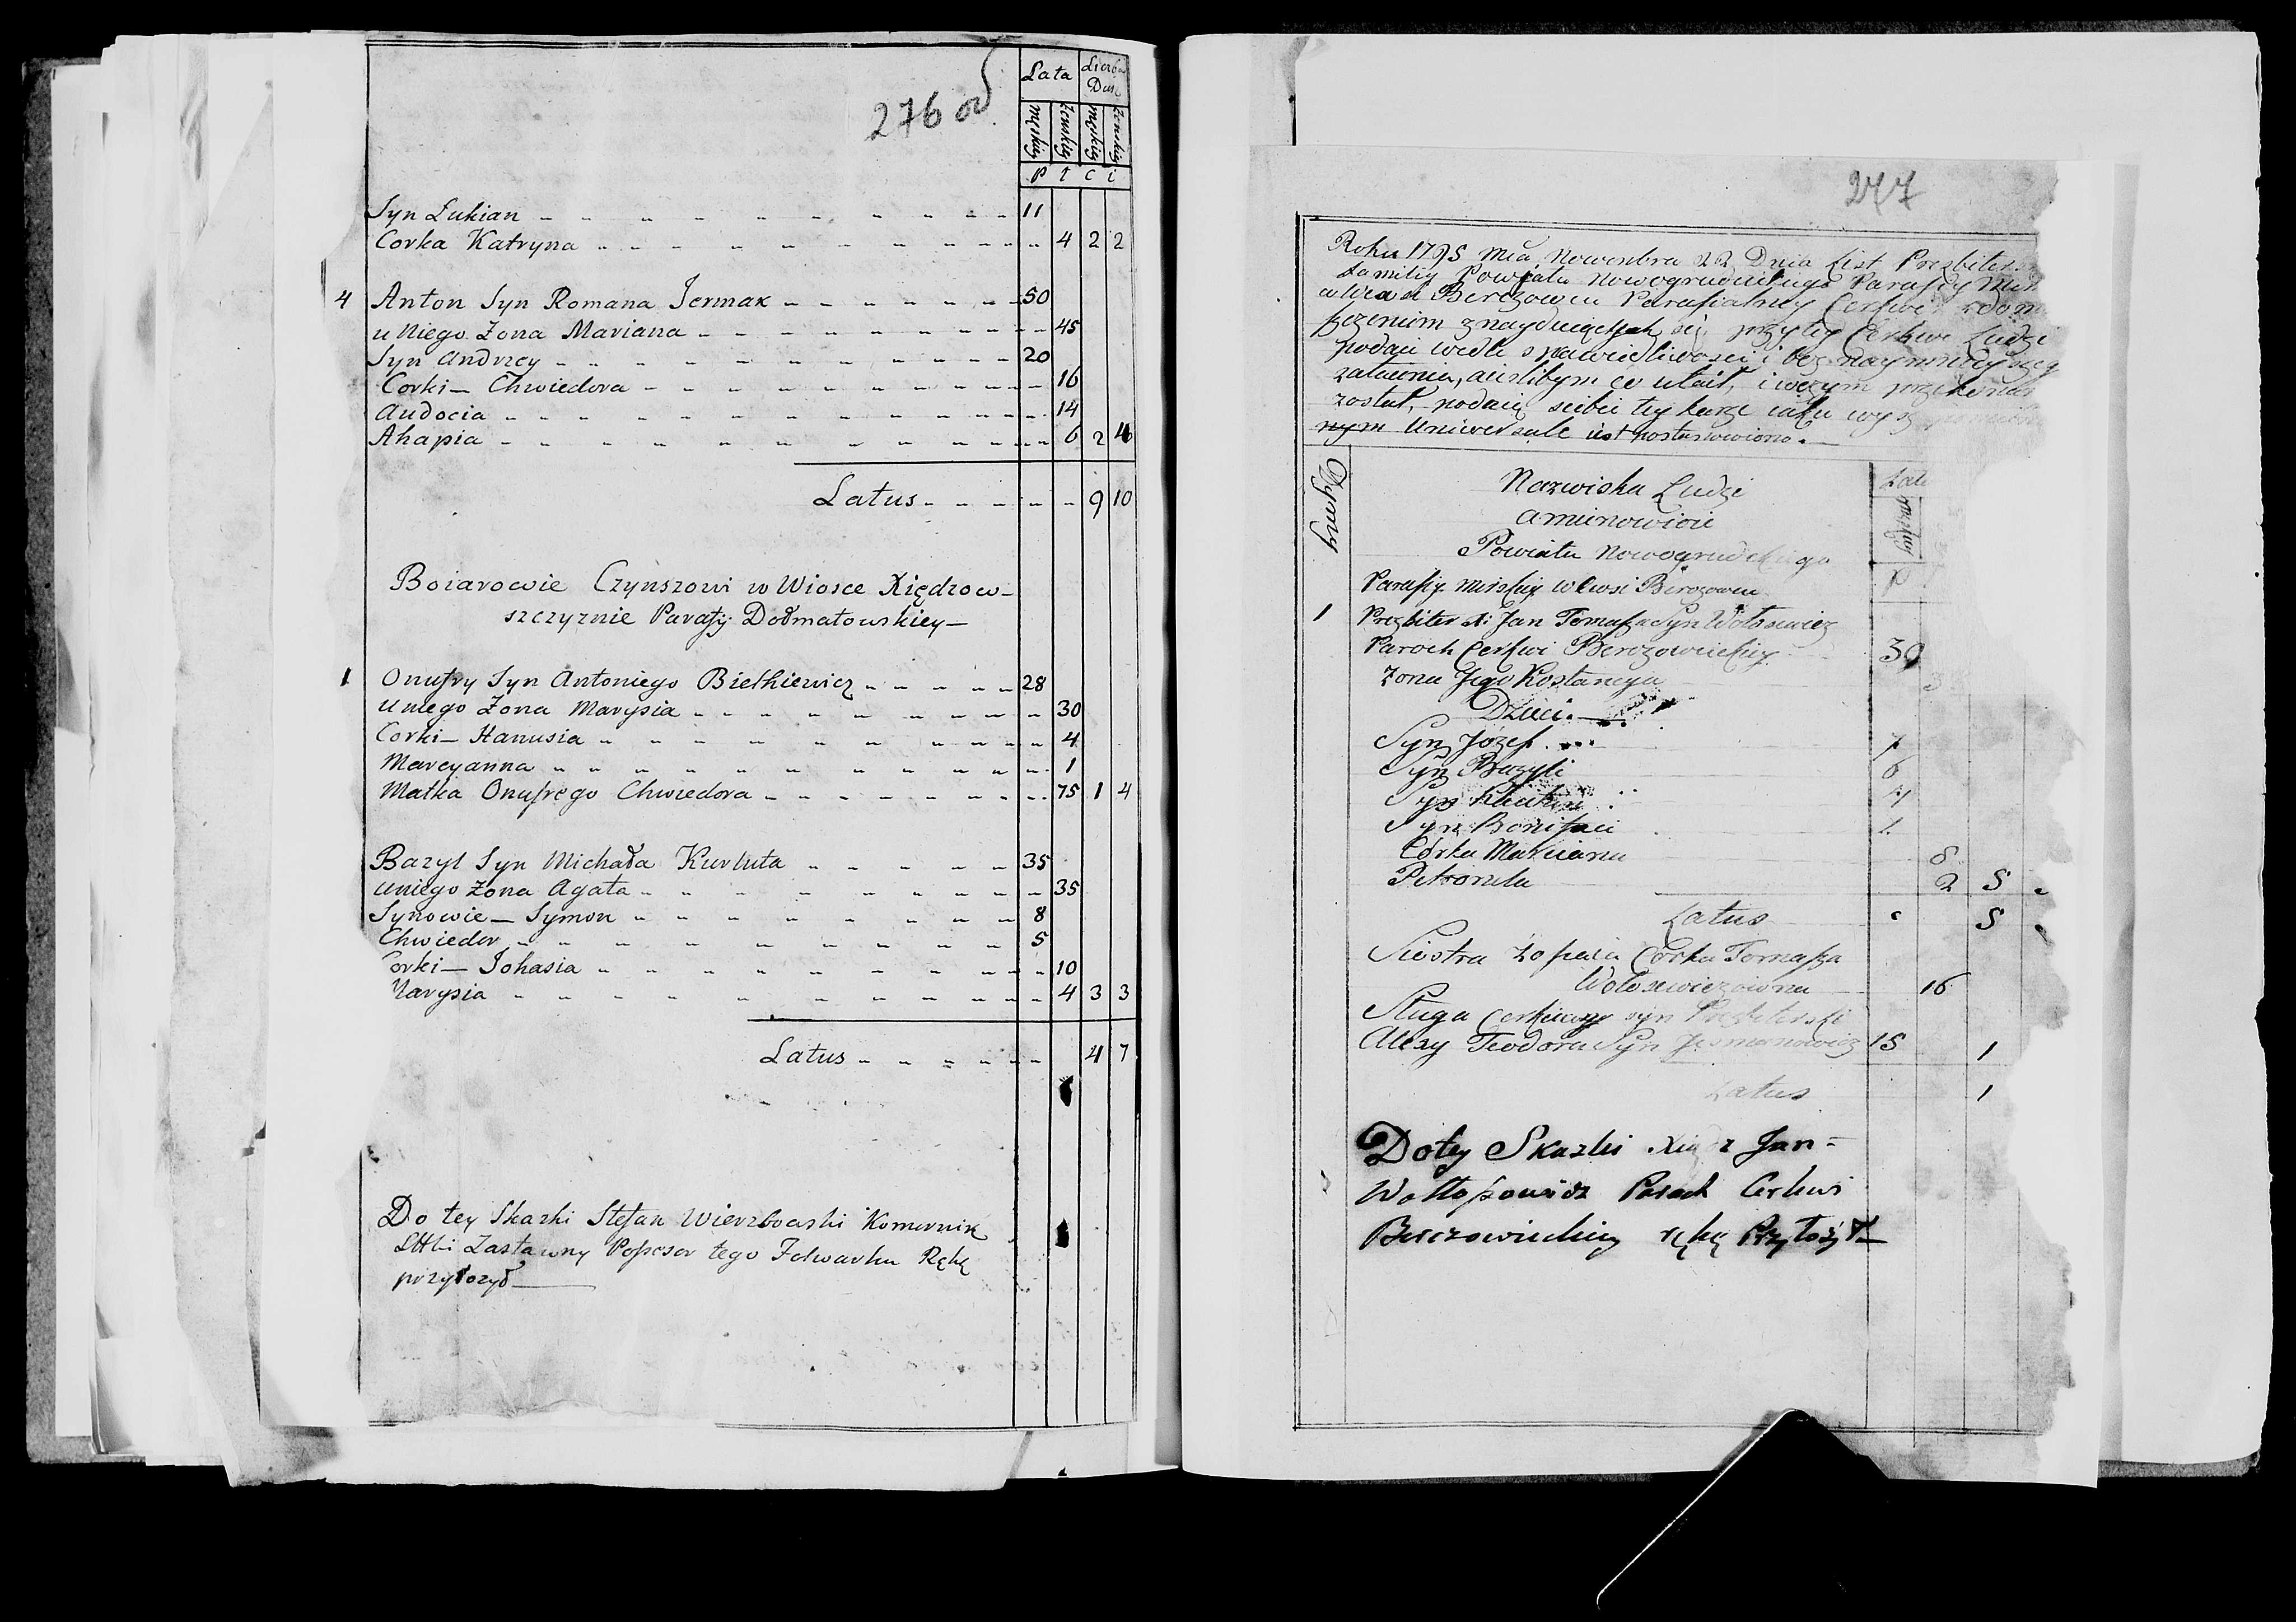 276 od
Lata Liczba Dusz
męskiey żenskiey męskiey żenskiey
P t c i
Syn Lukian 11
Corka Katryna 4 2 2
4 Anton Syn Romana Jermak 50
u Niego Zona Mariana 45
Syn Andrzey 20
Corki — Chwiedora 16
Audocia 14
Ahapia 6 2 4
Latus 9 10
Boiarowie Czynszowi w Wiosce Xiędzow-
szczyznie Parafij Dołmatowskiey —
1 Onufry Syn Antoniego Bielkiewicz 28
u niego Zona Marysia 30
Corki — Hanusia 4
Marcyanna 1
Matka Onufrego Chwiedora 75 1 4
Bazyl Syn Michała Kurluta 35
u niego Zona Agata 35
Synowie — Symon 8
Chwiedor 5
orki — Johasia 10
Marysia 4 3 3
Latus 4 7
Do tey Skazki Stefan Wierzbowski Komornik
Zastawny Possesor tego Folwarku Rękę
przyłozył
277
Roku 1795 Mca Nowembra 22 Dnia List Prezbiter
Familiy Powiatu Nowogrudzkiego Parafiy Mir
Berezowcu Parafialney Cerkwi
znayduiących się przy tey Cerkwi Ludzi
podaie wedle sprawiedliwości i bez naymnieyszeg
zataienia, ieślibym co utaił, i w czym przekonan
został, podaię siebie tey karze iaka wyz
nym Uniwersale iest postanowiono.
Dymy
Nazwiska Ludzi
a mianowicie
Powiatu Nowogrudzkiego
Parafiy Mirskiey w Wsi Berozowcu
Lat
męskiey
P
1 Prezbiter X: Jan Tomasza Syn Wołosewicz
Paroch Cerkwi Berozowieckiey 39
Zona Jego Kostancya
Dzieci.
Syn Józef 7
Syn Bazyli 6
Syn 4
Syn Bonifaci 1
Córka Marianna 8
Petronela 2 5
Latus 5
Siostra Zofiia Córka Tomasza
Wołosewiczowna 16
Sługa Cerkiewny syn Prezbiterski
Alexy Teodora Syn 15 1
Latus 1
Do tey Skazki Xiądz Jan
Wołłosowicz Paroch Cerkwi
Berezowieckiey rękę Przyłożył